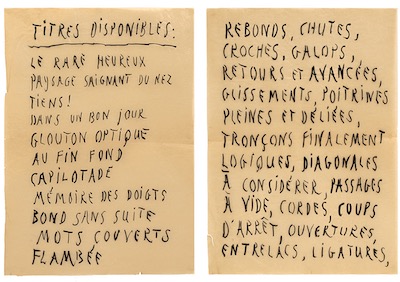 TITRES DISPONIBLES:
LE RARE HEUREUX
PAYSAGE SAIGNANT DU NEZ
TIENS!
DANS UN BON JOUR
GLOUTON OPTIQUE
AU FIN FOND
CAPILOTADE
MÉMOIRE DES DOIGTS
BOND SANS SUITE
MOTS COUVERTS
FLAMBÉE
REBONDS, CHUTES,
CROCHES, GALOPS,
RETOURS ET AVANCÉES,
GLISSEMENTS, POITRINES
PLEINES ET DÉLIÉES,
TRONÇONS FINALEMENT
LOGIQUES, DIAGONALES
À CONSIDÉRER, PASSAGES
À VIDE, CORDES, COUPS
D'ARRÊT, OUVERTURES,
ENTRELACS, LIGATURES,